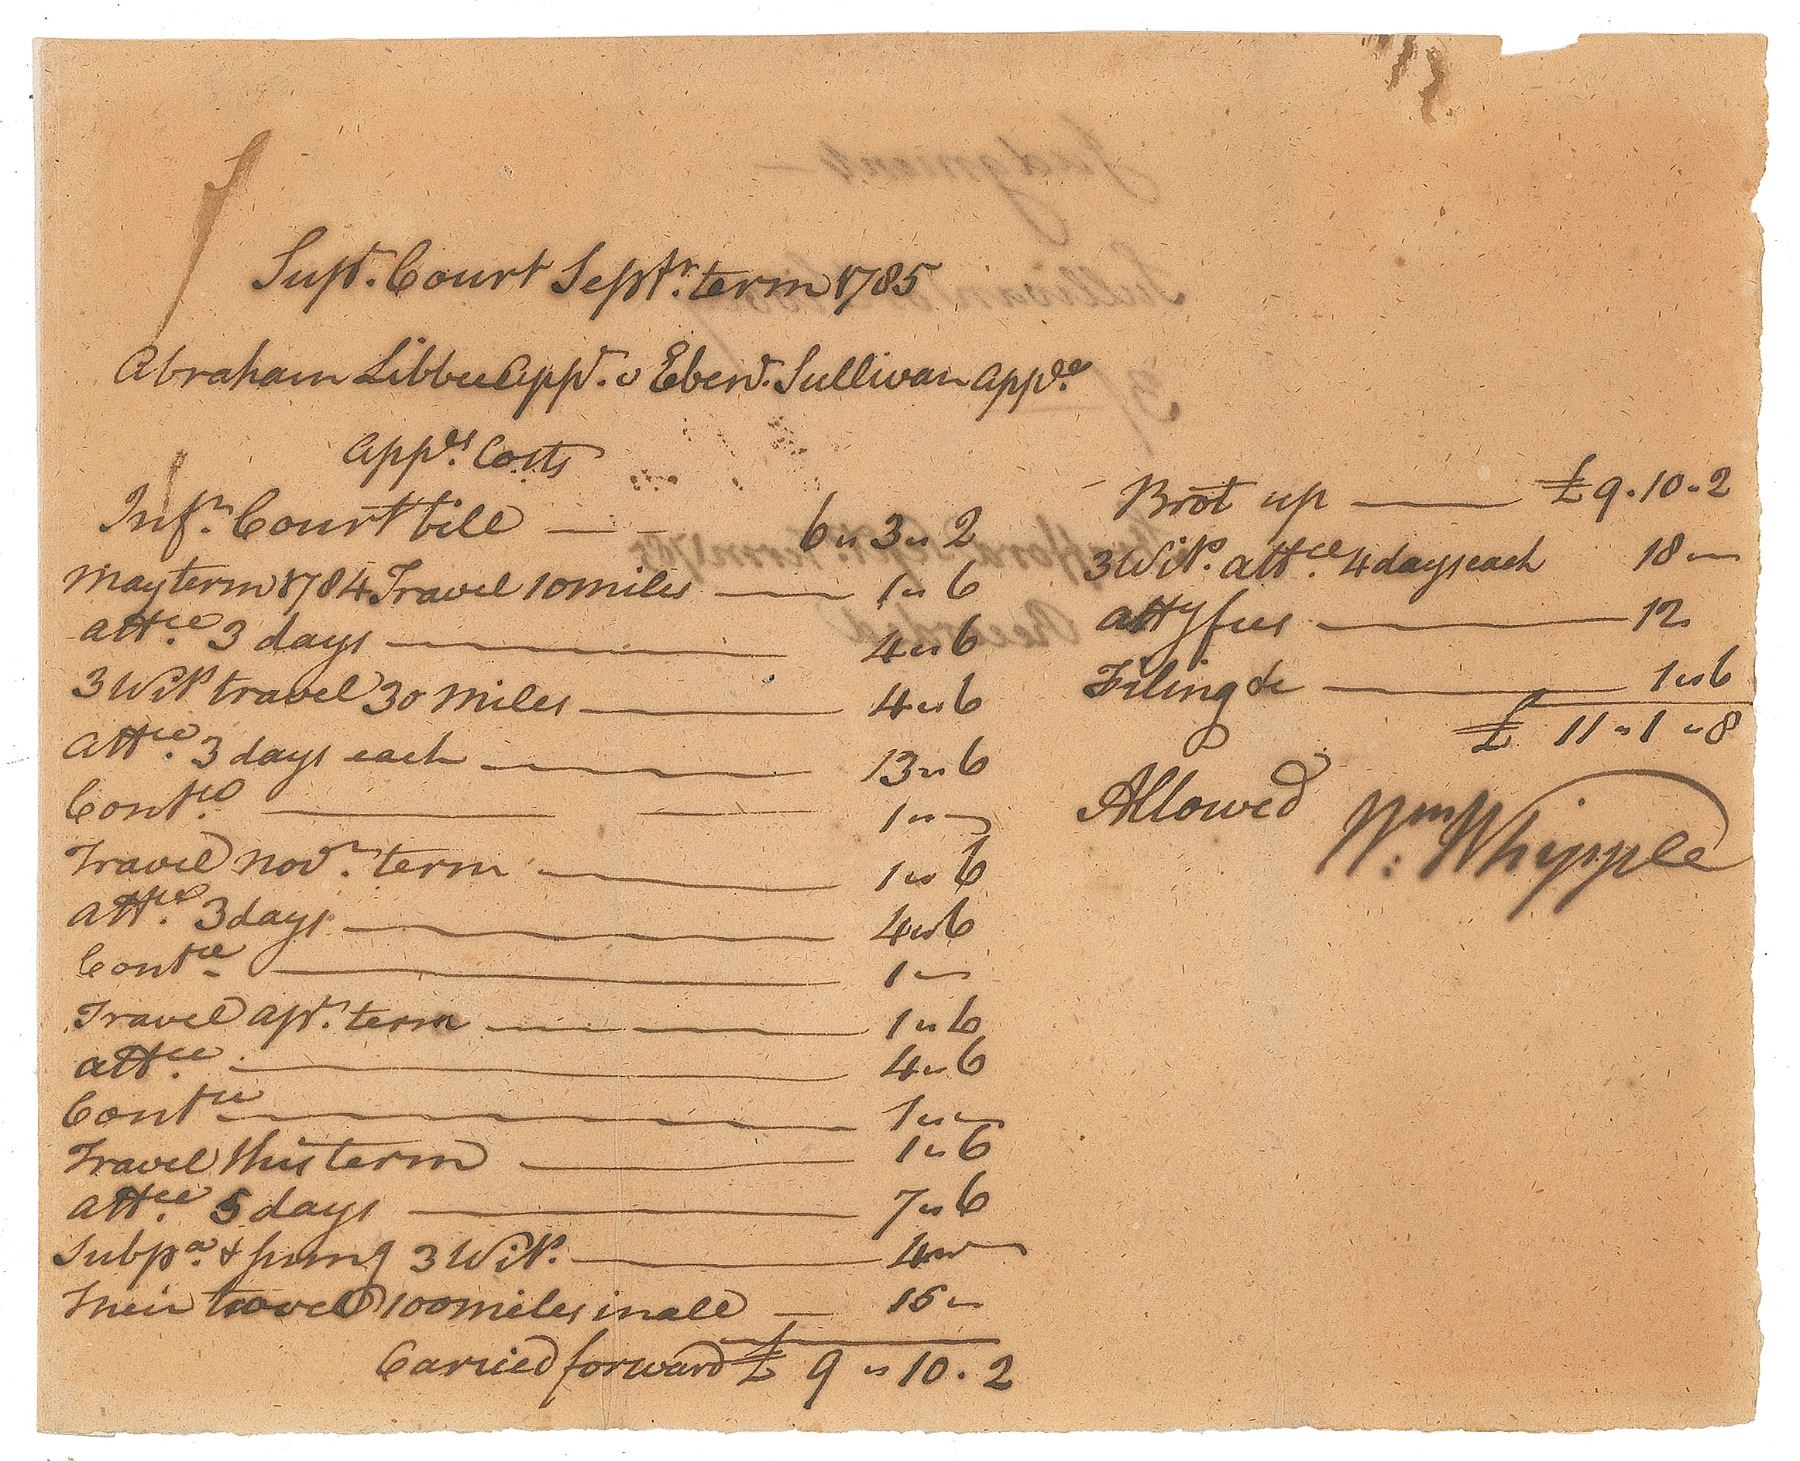 Supr. Court Septr. term 1785
Abraham Libbee Appt. v Ebenr. Sullivan appee
Appees Costs
Infr. Court bill — — 6 " 3 " 2
May term 1784 Travel 10 miles — 1 " 6
attce. 3 days — 4 " 6
3 Wits travel 30 miles — 4 " 6
attce. 3 days each — 13 " 6
Contce. — 1 " —
Travel Novr. term — 1 " 6
attce. 3 days — 4 " 6
Contce — 1 " —
Travel apr. term — 1 " 6
attce. — 4 " 6
Contce — 1 " —
Travel this term — 1 " 6
attce. 5 days — 7 " 6
Subpa. & sumg 3 Wits. — 4 " —
Their travel 100 miles in all — 15 " —
Carried forward £ 9 " 10 . 2
Brot up — £ 9 . 10 . 2
3 Wits. attce. 4 days each 18 " —
atty fees — 12 "
Filing &c — 1 " 6
£ 11 " 1 " 8
Allowed Wm: Whipple
Judgment —
Sullivan
Recorded